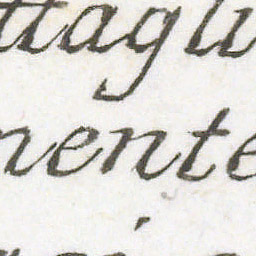 ttagli
nente